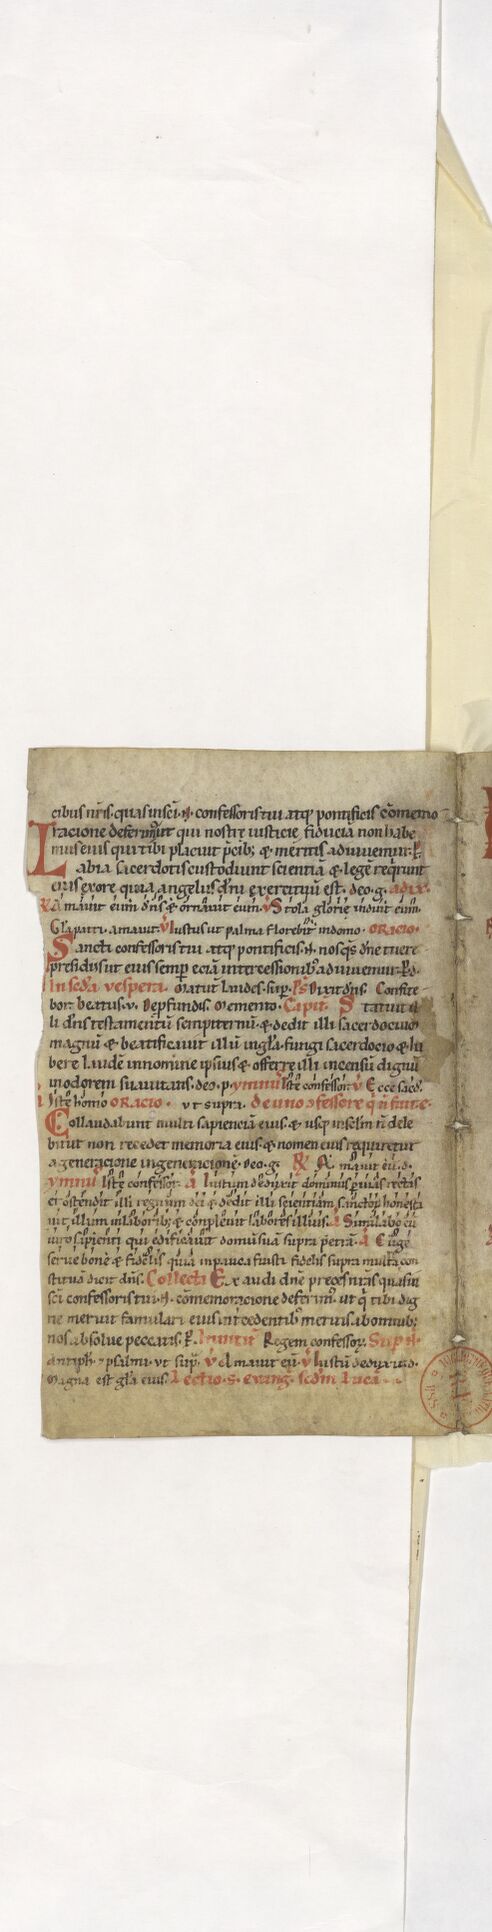 cibus nr̄is. quas insci̅. N. confessoris tui atq; pontificis cōmemo
racione deferim᷒ ut qui nostrę iusticię fiducia non habe
mus eius qui tibi placuit p̄cib; & meritis adiuuemur. P̱.
Labia sacerdotis custodiunt scientiā & legē reqͥrunt
eius ex ore quia angelus dn̄i exercituū est. deo. g.
Amauit eum dn̄s & ornauit eum. V̄ Stola glorię induit eum.
Gl̄a patri. amauit. V̄ Iustus ut palma florebit in domo. ORACIO.
Sancti confessoris tui atq; pontificis. N. nos q̄s dn̄e tuere
presidiis ut eius semper eciā intercessionib᷒ adiuuemur. P̱. d.
In scd̄a vespera. Matut̄ laudes. sup̄. Ps̄ Dixit dn̄s. Confite
bor. beatus. v. Deprfundis. Memento. Capit. Statuit il
li dn̄s testamentū sempiternū. & dedit illi sacerdociū
magnū & beatificauit illū in gl̄a. fungi sacerdocio & ha
bere laudē in nomine ipsius & offerre illi incensū dignū
in odorem suauitatis. deo. p. ymnū Iste confessor. V̄ Ecce sacd̄.
Iste homo ORACIO. ut supra. de uno ɔfessore
Collaudabunt multi sapienciā eius. & usq; in sclm̄ n̄ dele
bitur non recedet memoria eius & nomen eius requiretur
a generacione in generacionē. Deo. g. R̄ Amauit eū. d.
ymnū Iste confessor. A Iustum deduxit dominus p̱ uias rectas
et ostendit illi regnum dei & dedit illi scientiam sanctoꝝ honesta
uit illum in laborib; & conpleuit labores illius. A Simulabo eū
uiro sapienti qui edificauit domū suā supra petrā. A Euge
serue bone & fidelis quia in pauca fuisti fidelis supra multa con
stituā dicit dn̄s. Collecta Exaudi dn̄e preces nr̄as quas in
sci̅ confessoris tui. N. cōmemoracione deferim᷒. ut qͥ tibi dig
ne meruit famulari eius intcedentib᷒ meritis ab omnib;
nos absolue peccatis. P̱. Inuitat̄ Regem confessoꝝ.
antiph̄. 7 psalmi. ut sup̄. V̄ Amauit eū. V̄ Iustū deduxit. d.
Magna est gl̄a eius. Lectio. s. evang. scdm̄ lucā.